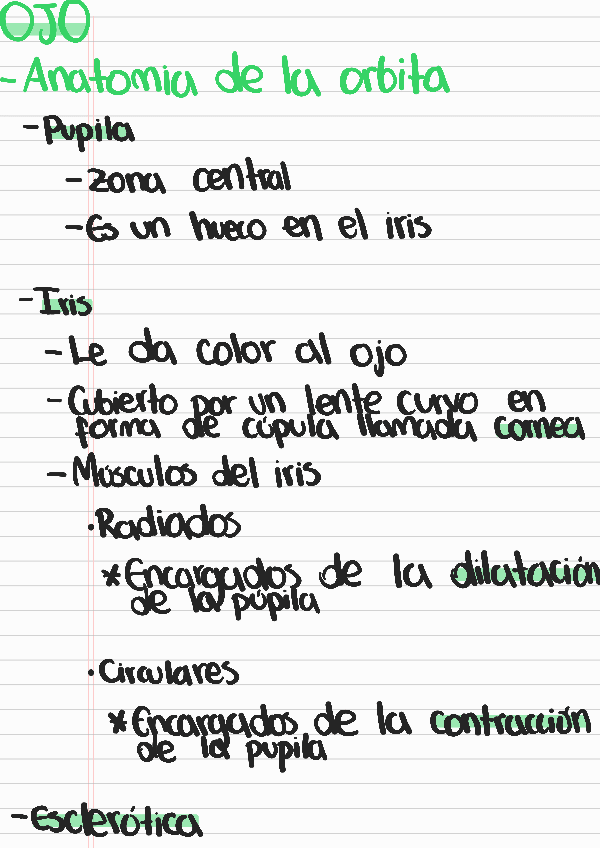 OJO
-Anatomia de la orbita
-Pupila
-Zona central
-Es un hueco en el iris
-Iris
-Le da color al ojo
-Cubierto por un lente curvo en
forma de cúpula llamada cornea
-Músculos del iris
·Radiados
*Encargados de la dilatación
de la pupila
·Circulares
*Encargados de la contracción
de la pupila
-Esclerótica